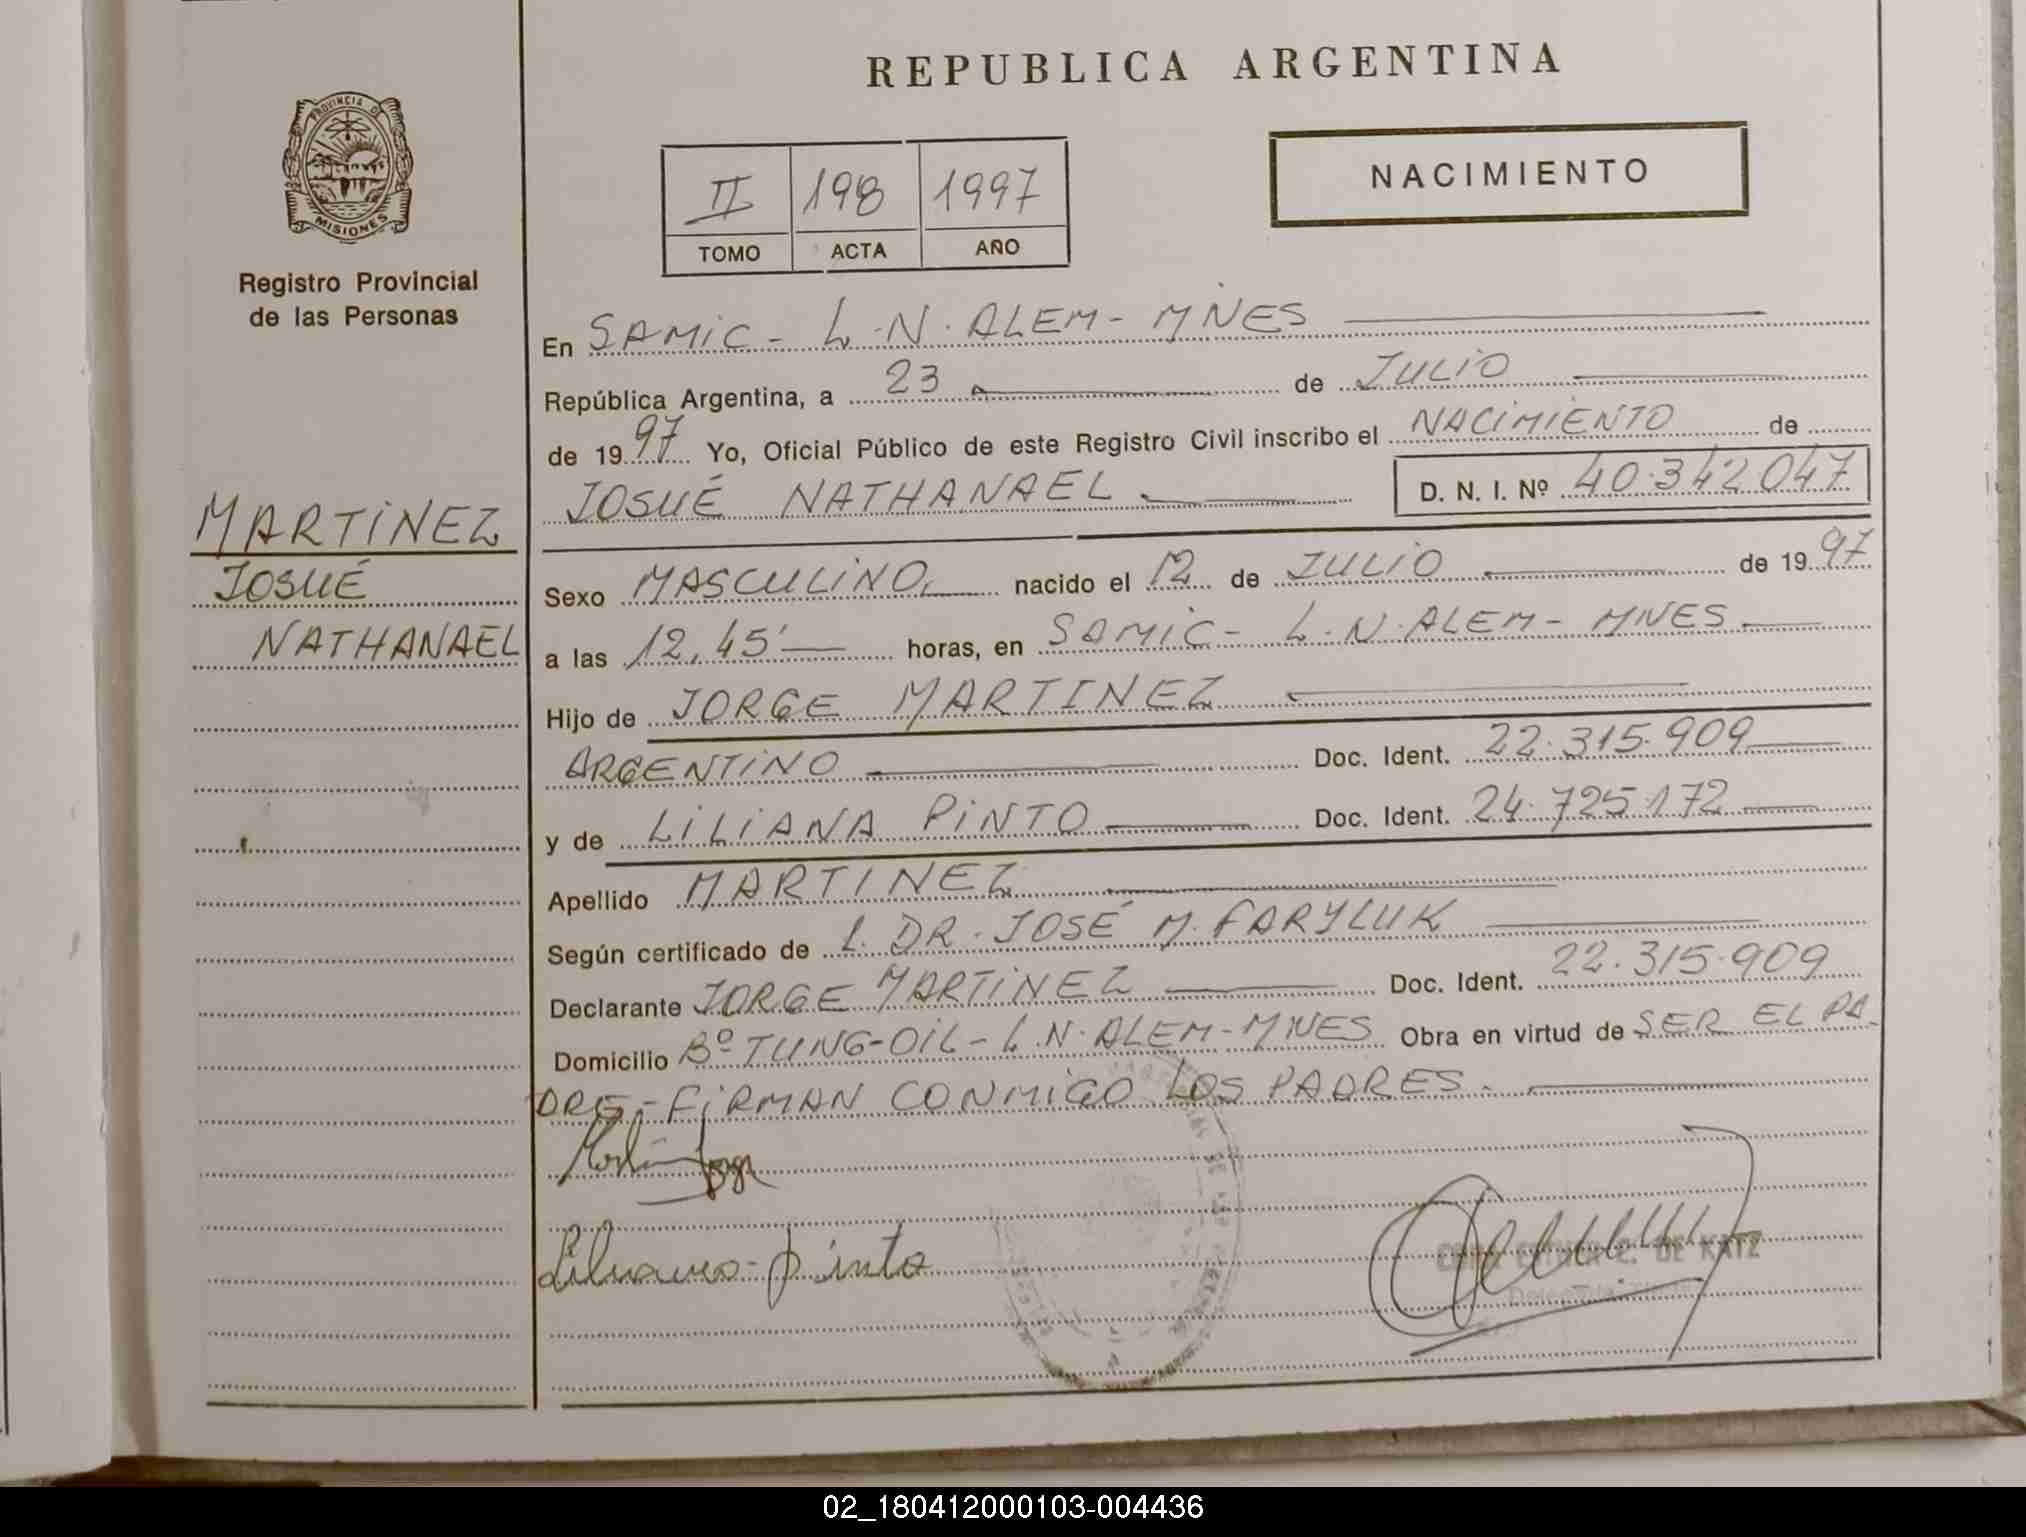 REPUBLICA ARGENTINA
PROVINCIA DE
MISIONES
Registro Provincial
de las Personas
NACIMIENTO
II 198 1997
TOMO ACTA AÑO
En SAMIC - L.N. ALEM - MNES
República Argentina, a 23 de JULIO
de 1997 Yo, Oficial Público de este Registro Civil inscribo el NACIMIENTO de
JOSUÉ NATHANAEL D. N. I. Nº 40.342.047
MARTINEZ
JOSUÉ
NATHANAEL
Sexo MASCULINO nacido el 12 de JULIO de 1997
a las 12,45' horas, en SAMIC - L.N. ALEM - MNES
Hijo de JORGE MARTINEZ
ARGENTINO Doc. Ident. 22.315.909
y de LILIANA PINTO Doc. Ident. 24.725.172
Apellido MARTINEZ
Según certificado de DR. JOSÉ M. FARYLUK
Declarante JORGE MARTINEZ Doc. Ident. 22.315.909
Domicilio Bº TUNG-OIL - L.N. ALEM - MNES Obra en virtud de SER EL PA-
DRE - FIRMAN CONMIGO LOS PADRES.
Liliana Pinto
DE KATZ
02_180412000103-004436